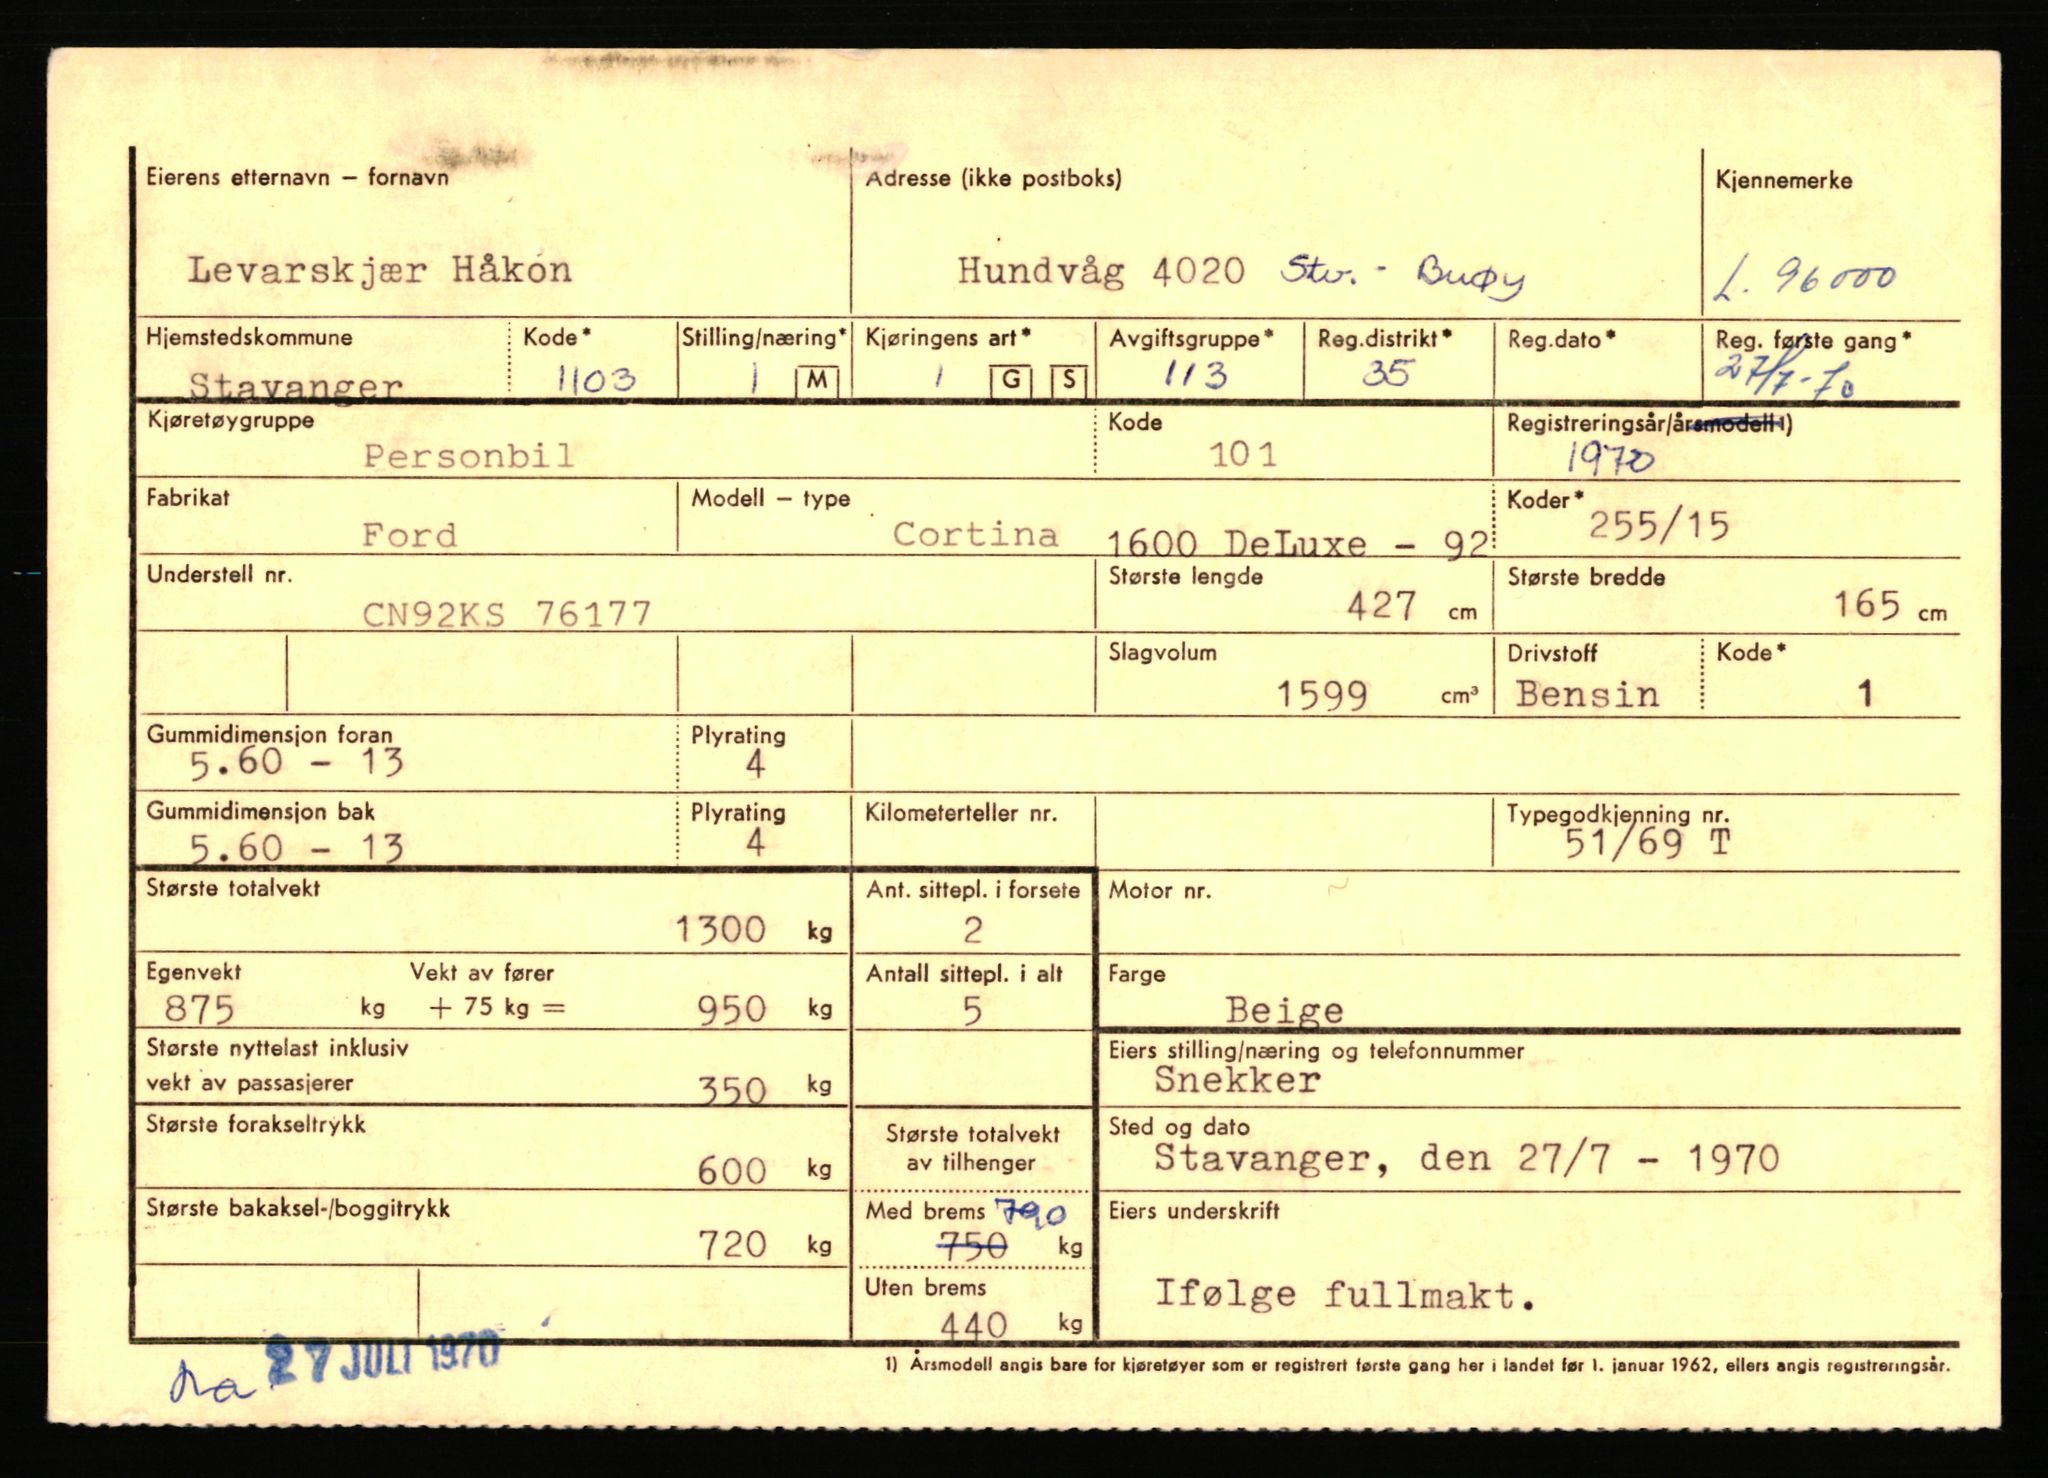 Eierens etternavn – fornavn
Adresse (ikke postboks)
Kjennemerke
Levarskjær Håkon
Hundvåg 4020 Stv. - Buøy
L. 96000
Hjemstedskommune
Kode*
Stilling/næring*
Kjøringens art*
Avgiftsgruppe*
Reg.distrikt*
Reg.dato*
Reg. første gang*
Stavanger
1103
1 M
1 G S
113
35
27/7-70
Kjøretøygruppe
Kode
Registreringsår/årsmodell 1)
Personbil
101
1970
Fabrikat
Modell – type
Koder*
Ford
Cortina 1600 DeLuxe - 92
255/15
Understell nr.
Største lengde
Største bredde
CN92KS 76177
427 cm
165 cm
Slagvolum
Drivstoff
Kode*
1599 cm³
Bensin
1
Gummidimensjon foran
Plyrating
5.60 - 13
4
Gummidimensjon bak
Plyrating
Kilometerteller nr.
Typegodkjenning nr.
5.60 - 13
4
51/69 T
Største totalvekt
Ant. sittepl. i forsete
Motor nr.
1300 kg
2
Egenvekt
Vekt av fører
Antall sittepl. i alt
Farge
875 kg + 75 kg = 950 kg
5
Beige
Største nyttelast inklusiv
vekt av passasjerer
350 kg
Eiers stilling/næring og telefonnummer
Snekker
Største forakseltrykk
600 kg
Største totalvekt
av tilhenger
Sted og dato
Stavanger, den 27/7 - 1970
Største bakaksel-/boggitrykk
720 kg
Med brems 790
750 kg
Eiers underskrift
Uten brems
440 kg
Ifølge fullmakt.
27 JULI 1970
1) Årsmodell angis bare for kjøretøyer som er registrert første gang her i landet før 1. januar 1962, ellers angis registreringsår.